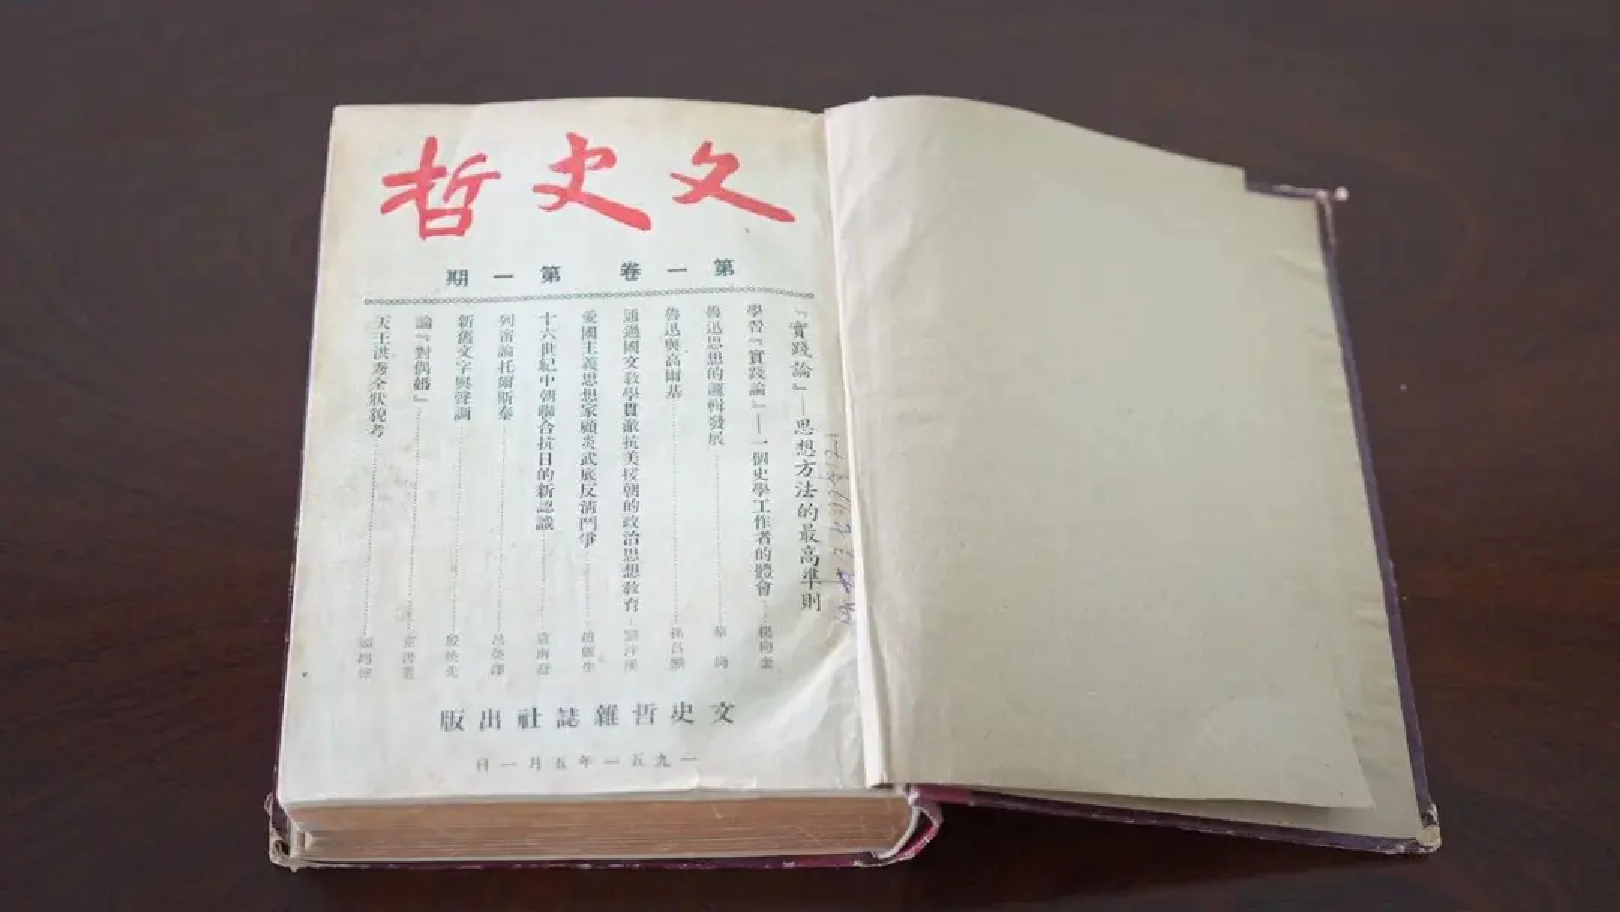 文史哲
第一卷 第一期
『實踐論』—思想方法的最高準則
學習『實踐論』—一個史學工作者的體會……楊向奎
魯迅思想的邏輯發展
魯迅與高爾基……孫昌熙
通過國文教學貫徹抗美援朝的政治思想教育
愛國主義思想家顧炎武底反清鬥爭……趙儷生
十六世紀中朝聯合抗日的新認識
列甯論托爾斯泰……呂熒譯
新舊文字與聲調……殷煥先
論『對偶婚』
天王洪秀全狀貌考
文史哲雜誌社出版
一九五一年五月一日